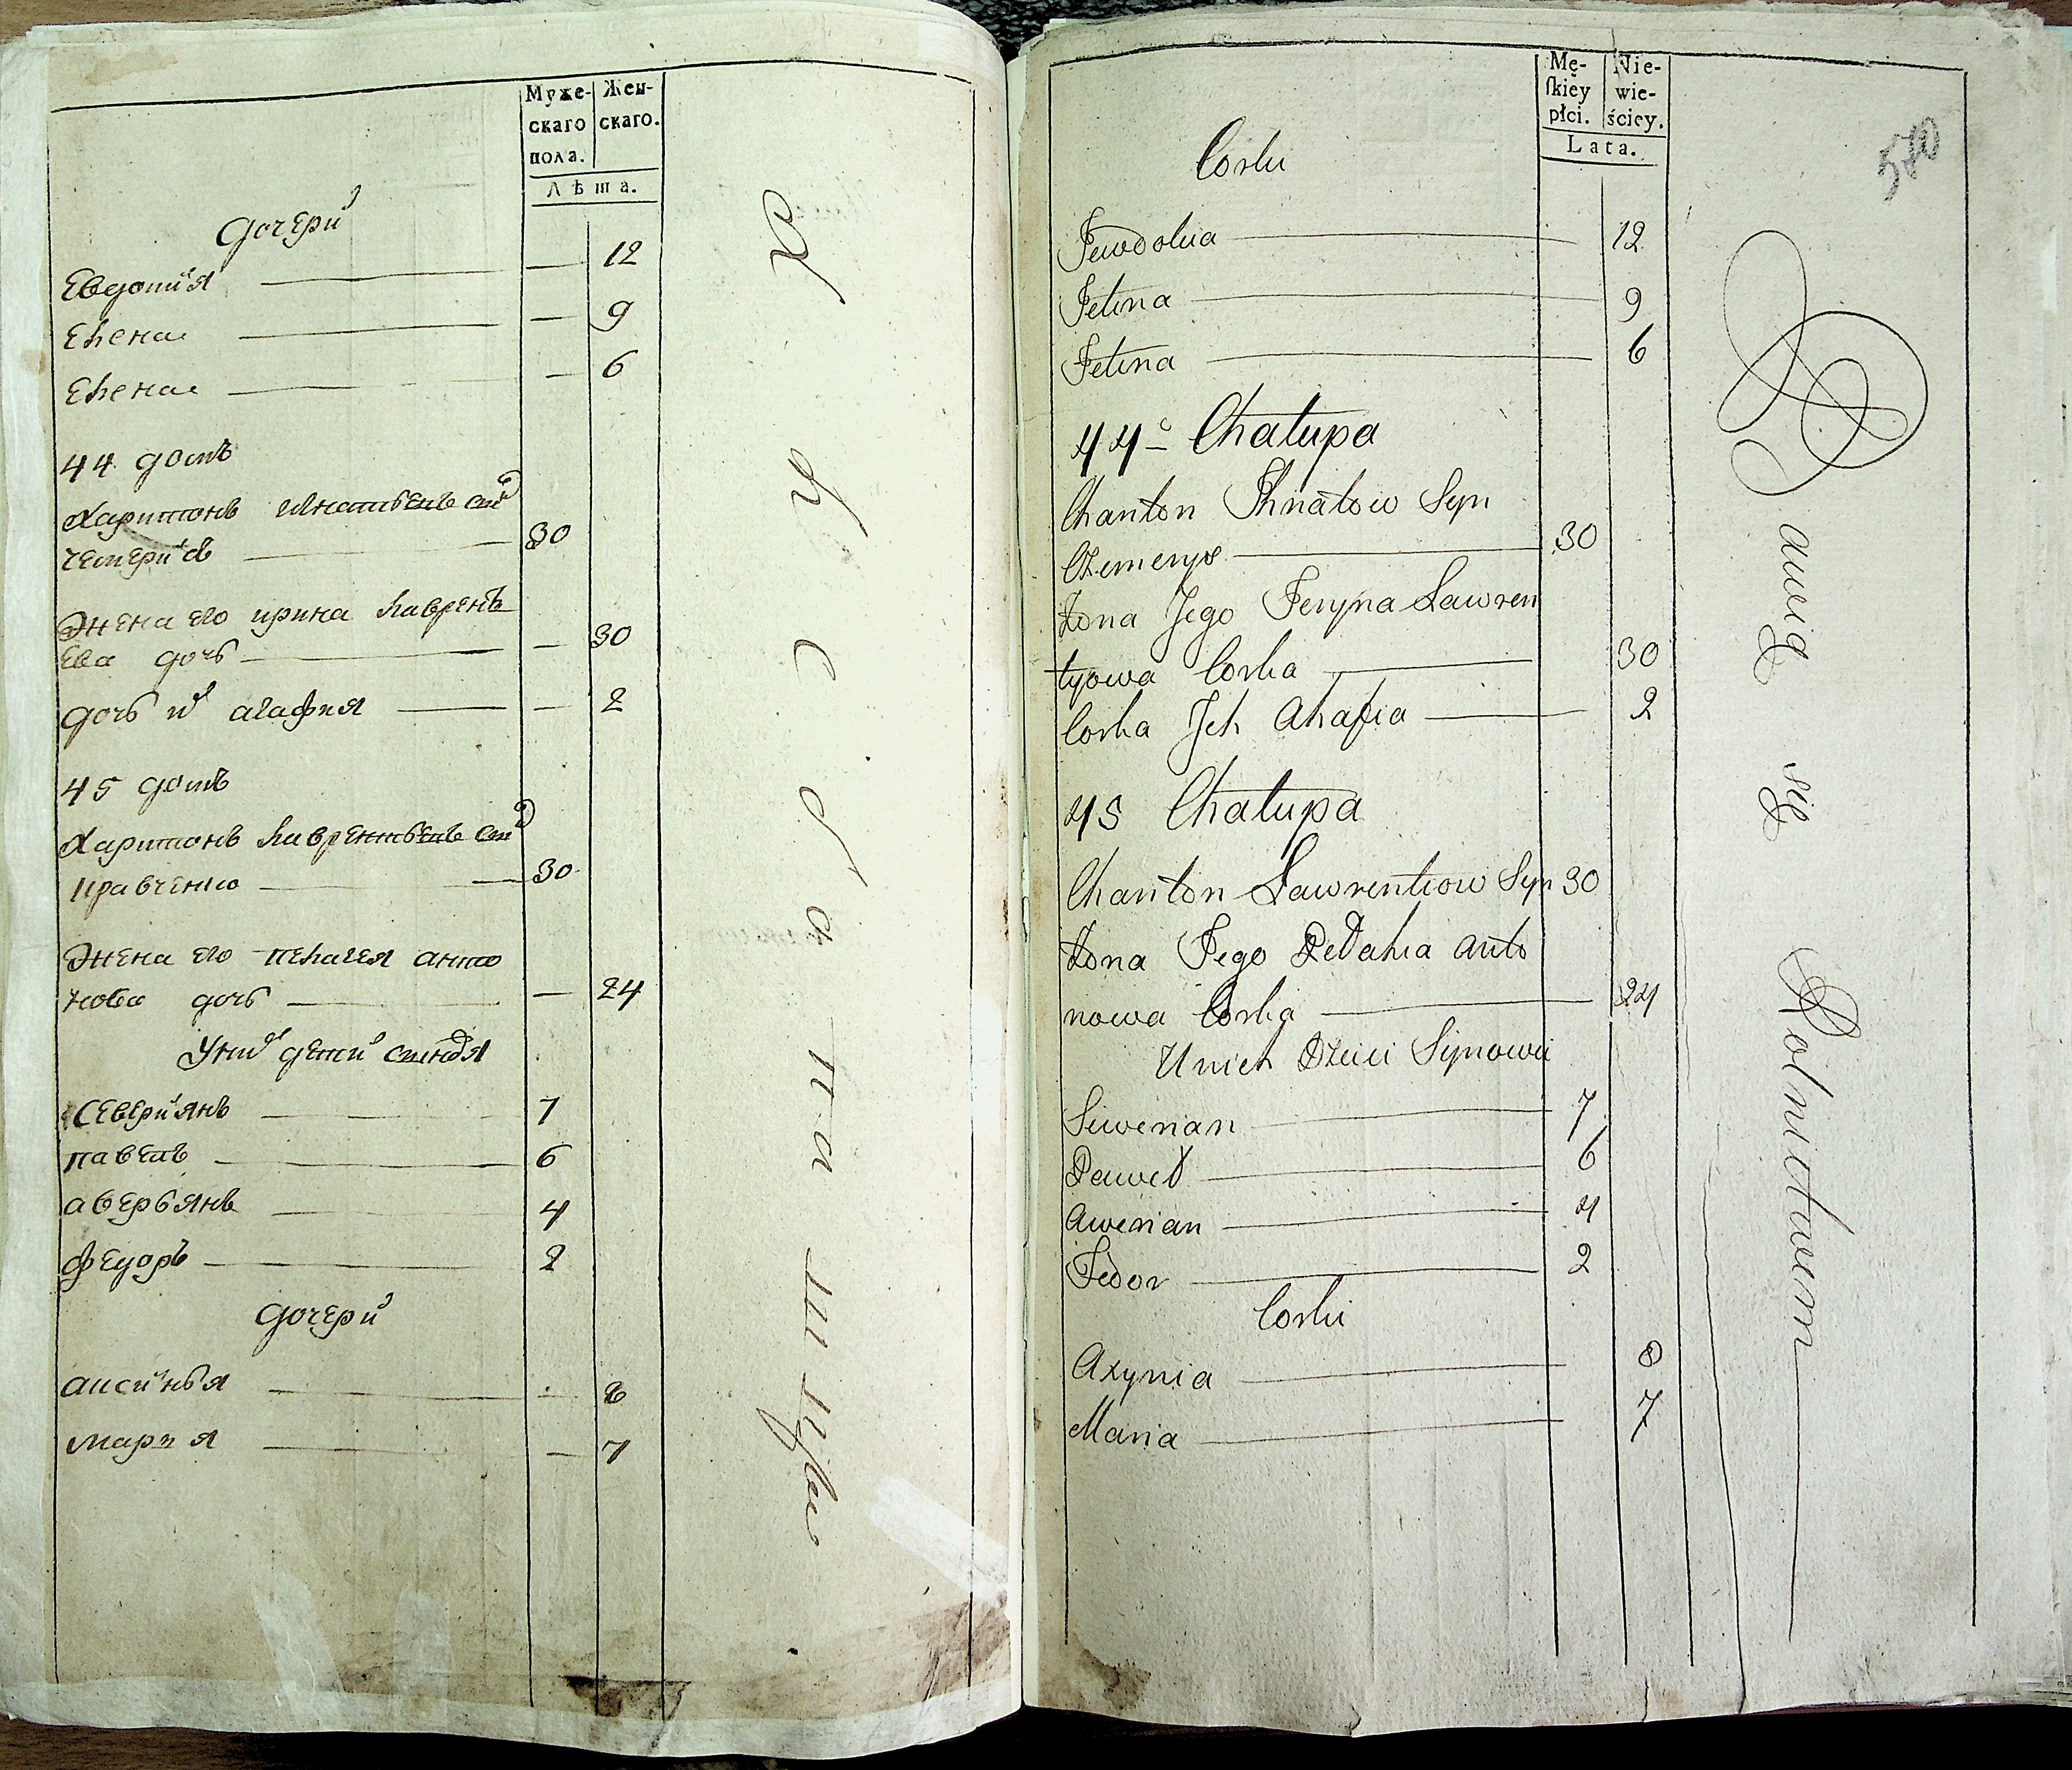 Муже-
скаго
пола.
Жен-
скаго.
Лѣта.
дочери
Евдокия — — 12
Елена — — 9
Елена — — 6
44 домъ
Харитонъ Игнатьевъ сынъ
чемерисъ — 30
Жена его ирина лаврень
ева дочь — — 30
дочь их агафия — — 2
45 домъ
Харитонъ лаврентьевъ сынъ
кравченко — 30
Жена его пелагея анто
нова дочь — — 24
У них дети сыновя
Северианъ — 7
павелъ — 6
аверьянъ — 4
федоръ — 2
дочери
аксинья — 8
мария — 7
Mę-
skiey
płci.
Nie-
wie-
ściey.
Lata.
540
Corki
Jewdokia — 12
Jelina — 9
Jelina — 6
44 Chałupa
Chariton Ihnatow Syn
Czemerys — 30
Żona Jego Jeryna Lawren
tyowa Corka — 30
Corka Jch Ahafia — 2
45 Chałupa
Chariton Lawrentiow Syn 30
Żona Jego Pelahia Anto
nowa Corka — 24
U nich Dzieci Synowie
Siwerian — 7
Pawel — 6
Awerian — 4
Fedor — 2
Corki
Axynia — 8
Maria — 7
bawią się Rolnictwem